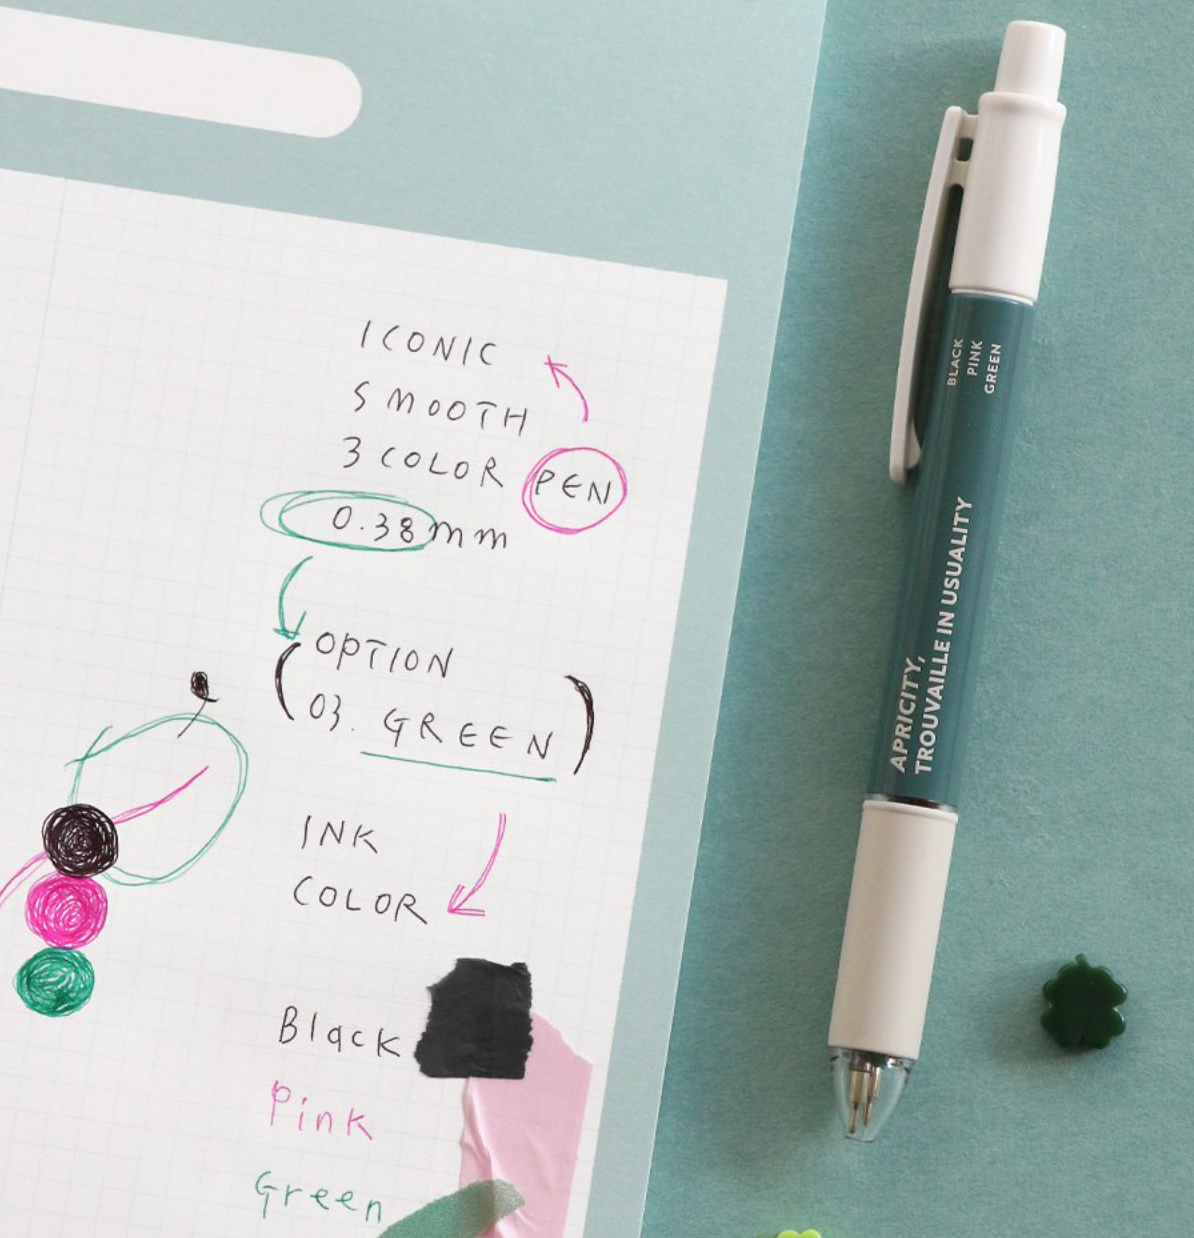 ICONIC
SMOOTH
3 COLOR PEN
0.38mm
OPTION
(03. GREEN)
INK
COLOR
Black
Pink
Green
BLACK
PINK
GREEN
APRICITY,
TROUVAILLE IN USUALITY